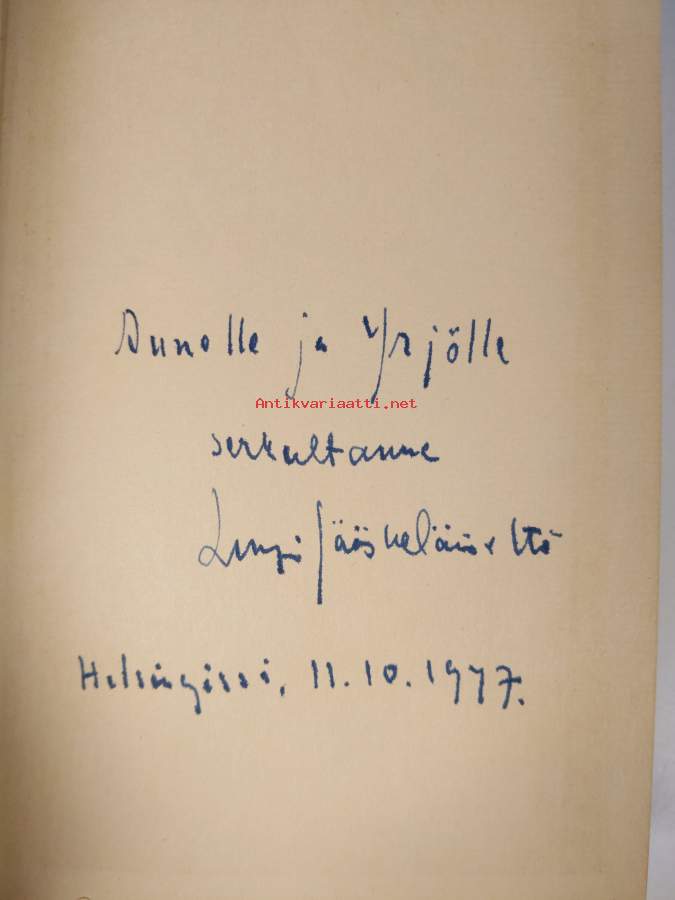 Annolle ja Yrjölle
Antikvariaatti.net
serkultanne
Lungi Jääskeläiseltä
Helsingissä, 11.10.1977.